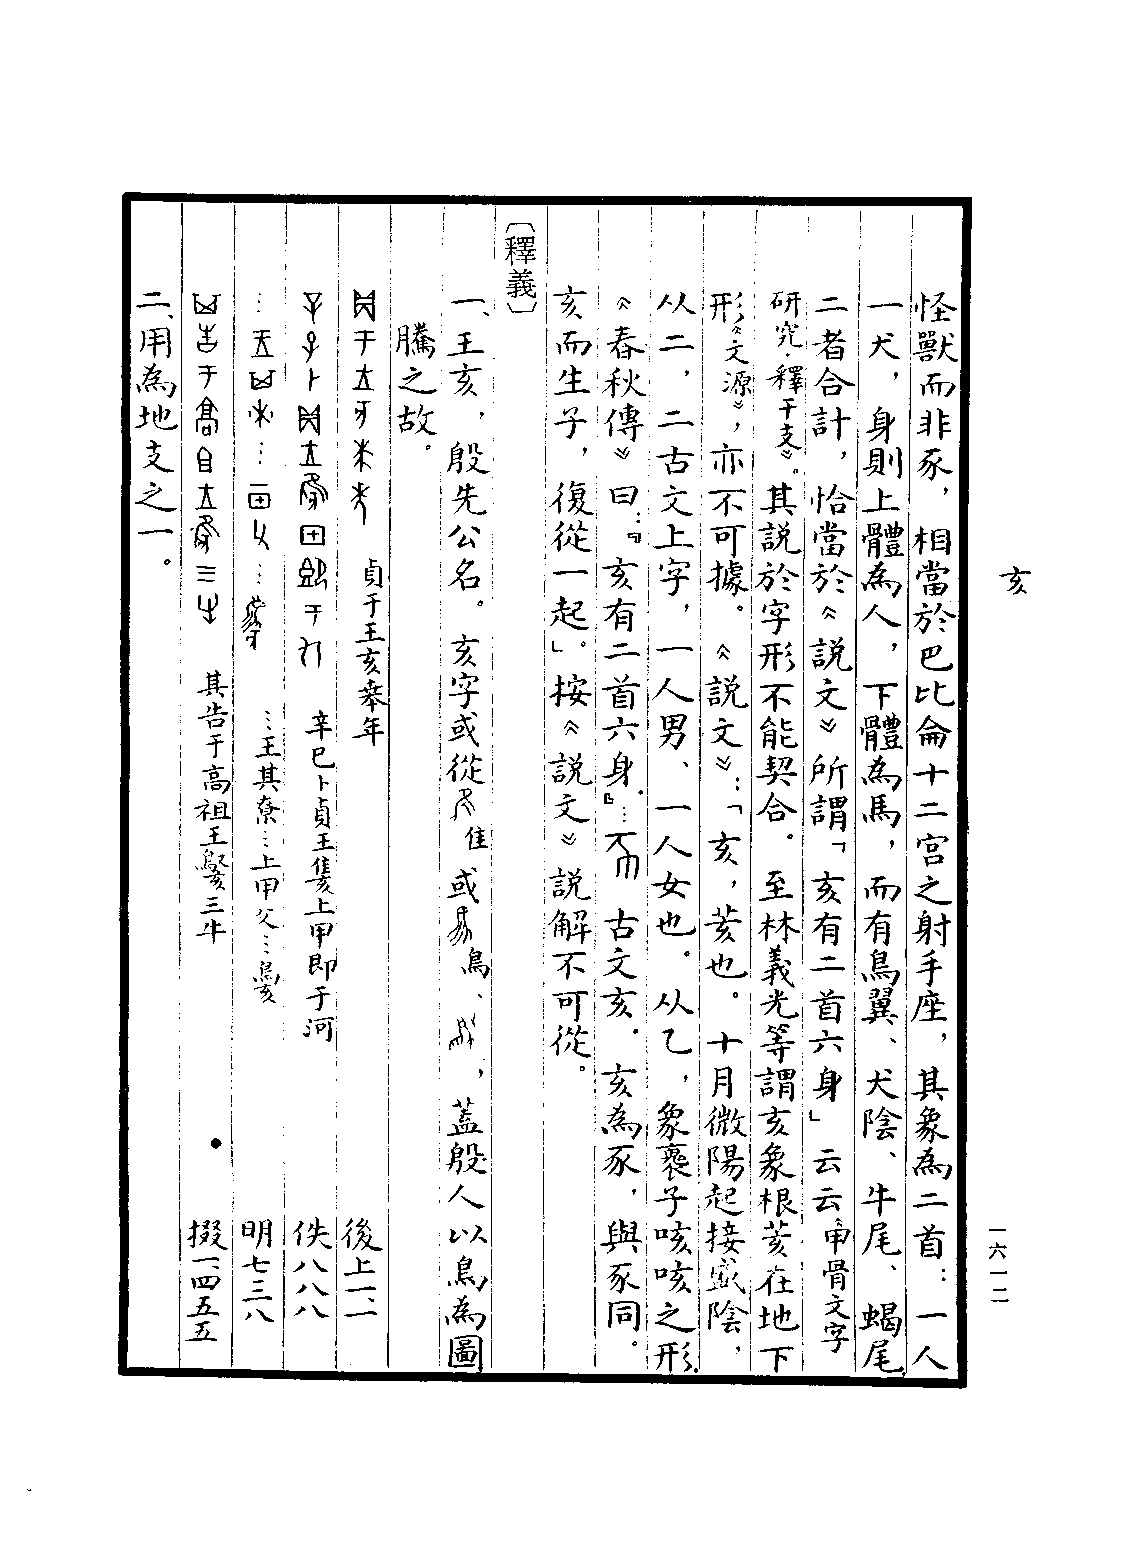 亥
一六一二
怪獸而非豕，相當於巴比侖十二宮之射手座，其象為二首：一人
一犬，身則上體為人，下體為馬，而有鳥翼、犬陰、牛尾、蝎尾
二者合計，恰當於《說文》所謂「亥有二首六身」云云《甲骨文字
研究．釋干支》。其說於字形不能契合。至林義光等謂亥象根荄在地下
形《文源》，亦不可據。《說文》：「亥，荄也。十月微陽起接盛陰，
从二，二古文上字，一人男、一人女也。从乙，象裹子咳咳之形
《春秋傳》曰：『亥有二首六身』…古文亥．亥為豕，與豕同。
亥而生子，復從一起」。按《說文》說解不可從。
〔釋義〕
一、王亥，殷先公名。亥字或從隹或鳥、，蓋殷人以鳥為圖
騰之故。
貞于王亥𠦪年 後上一、一
辛巳卜貞王亥上甲即于河 佚八八八
…王其尞…上甲父… 明七三八
其告于高祖王三牛 掇一、四五五
二、用為地支之一。